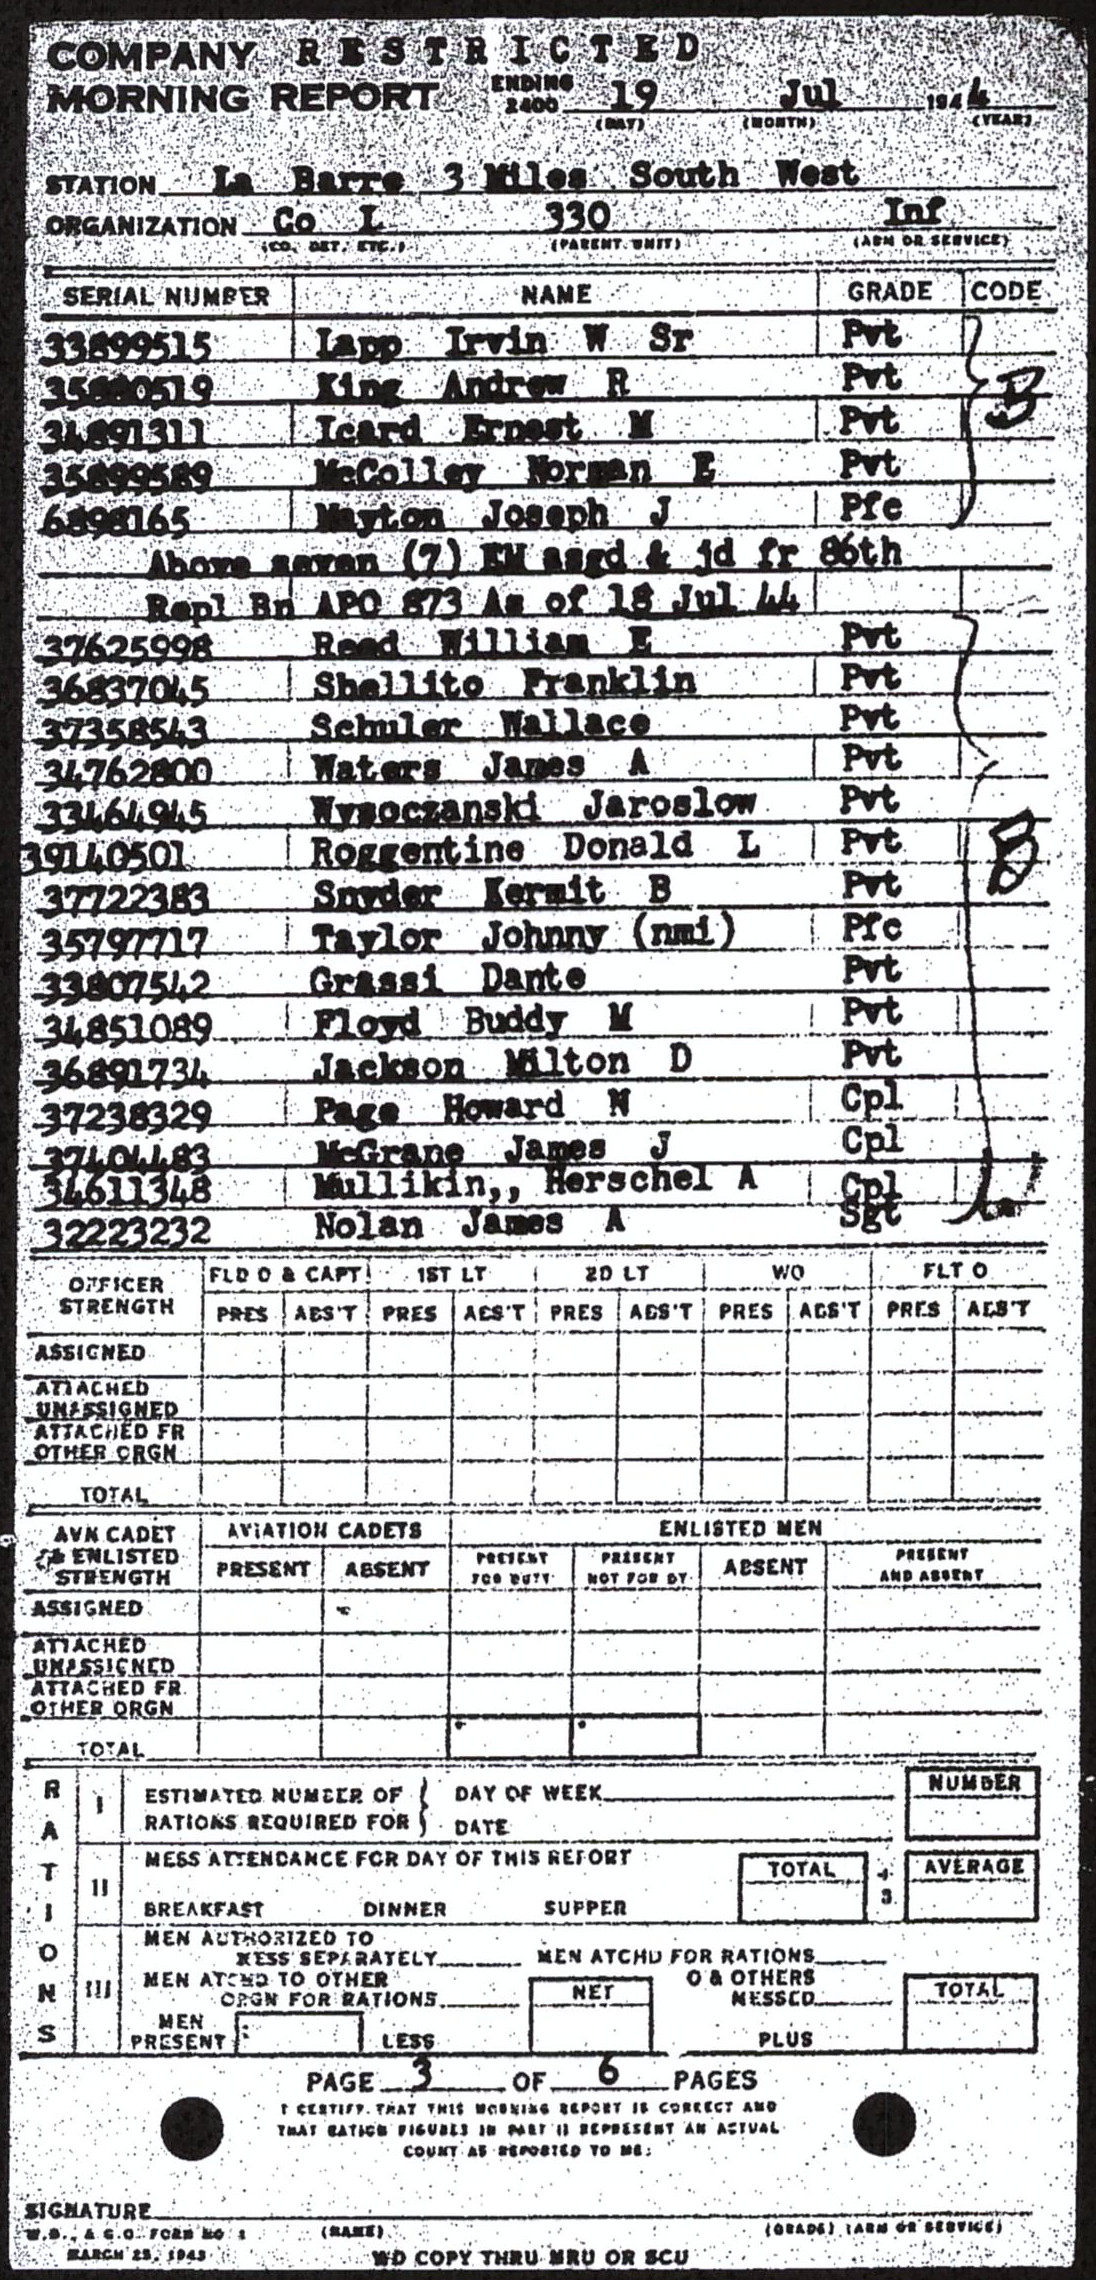 COMPANY RESTRICTED
MORNING REPORT ENDING 2400 19 Jul 1944
(DAY) (MONTH) (YEAR)
STATION La Barre 3 Miles South West
ORGANIZATION Co L 330 Inf
(CO. DET. ETC.) (PARENT UNIT) (ARM OR SERVICE)
SERIAL NUMBER NAME GRADE CODE
33899515 Lapp Irvin W Sr Pvt
35880519 King Andrew R Pvt
34891311 Icard Ernest M Pvt B
35899589 McColley Norman E Pvt
6898165 Mayton Joseph J Pfc
Above seven (7) EM asgd & jd fr 86th
Repl Bn APO 873 As of 18 Jul 44
37625998 Reed William E Pvt
36837045 Shellito Franklin Pvt
37358543 Schuler Wallace Pvt
34762800 Waters James A Pvt
33464945 Wysoczanski Jaroslow Pvt
39140501 Roggentine Donald L Pvt B
37722383 Snyder Kermit B Pvt
35797717 Taylor Johnny (nmi) Pfc
33807542 Grassi Dante Pvt
34851089 Floyd Buddy M Pvt
36891734 Jackson Milton D Pvt
37238329 Page Howard N Cpl
37404483 McGrane James J Cpl
34611348 Mullikin,, Herschel A Cpl
32223232 Nolan James A Sgt
OFFICER STRENGTH FLD O & CAPT 1ST LT 2D LT WO FLT O
PRES ABS'T PRES ABS'T PRES ABS'T PRES ABS'T PRES ABS'T
ASSIGNED
ATTACHED UNASSIGNED
ATTACHED FR OTHER ORGN
TOTAL
AVN CADET & ENLISTED STRENGTH AVIATION CADETS ENLISTED MEN
PRESENT ABSENT PRESENT FOR DUTY PRESENT NOT FOR DY ABSENT PRESENT AND ABSENT
ASSIGNED
ATTACHED UNASSIGNED
ATTACHED FR OTHER ORGN
TOTAL
RATIONS
I ESTIMATED NUMBER OF RATIONS REQUIRED FOR DAY OF WEEK NUMBER
DATE
II MESS ATTENDANCE FOR DAY OF THIS REPORT TOTAL ÷ 3 AVERAGE
BREAKFAST DINNER SUPPER
III MEN AUTHORIZED TO MESS SEPARATELY MEN ATCHD FOR RATIONS
MEN ATCHD TO OTHER ORGN FOR RATIONS NET O & OTHERS MESSED TOTAL
MEN PRESENT LESS PLUS
PAGE 3 OF 6 PAGES
I CERTIFY THAT THIS MORNING REPORT IS CORRECT AND
THAT RATION FIGURES IN PART II REPRESENT AN ACTUAL
COUNT AS REPORTED TO ME:
SIGNATURE
W.D., A.G.O. FORM NO 1 (NAME) (GRADE) (ARM OR SERVICE)
MARCH 25, 1943 WD COPY THRU MRU OR SCU